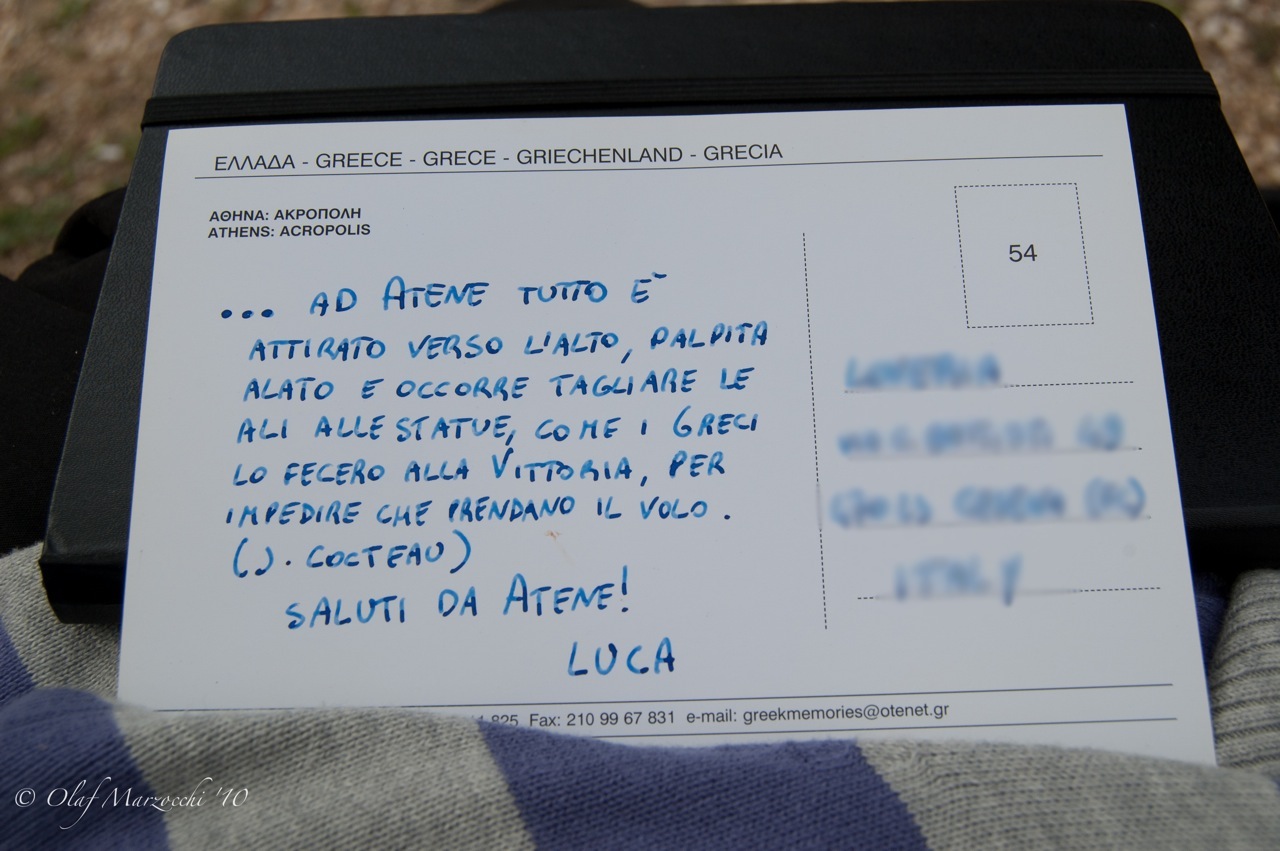 ΕΛΛΑΔΑ - GREECE - GRECE - GRIECHENLAND - GRECIA
ΑΘΗΝΑ: ΑΚΡΟΠΟΛΗ
ATHENS: ACROPOLIS
54
... AD ATENE TUTTO È
ATTIRATO VERSO L'ALTO, PALPITA
ALATO E OCCORRE TAGLIARE LE
ALI ALLE STATUE, COME I GRECI
LO FECERO ALLA VITTORIA, PER
IMPEDIRE CHE PRENDANO IL VOLO.
(J. COCTEAU)
SALUTI DA ATENE!
LUCA
ITALY
825 Fax: 210 99 67 831 e-mail: greekmemories@otenet.gr
© Olaf Marzocchi '10